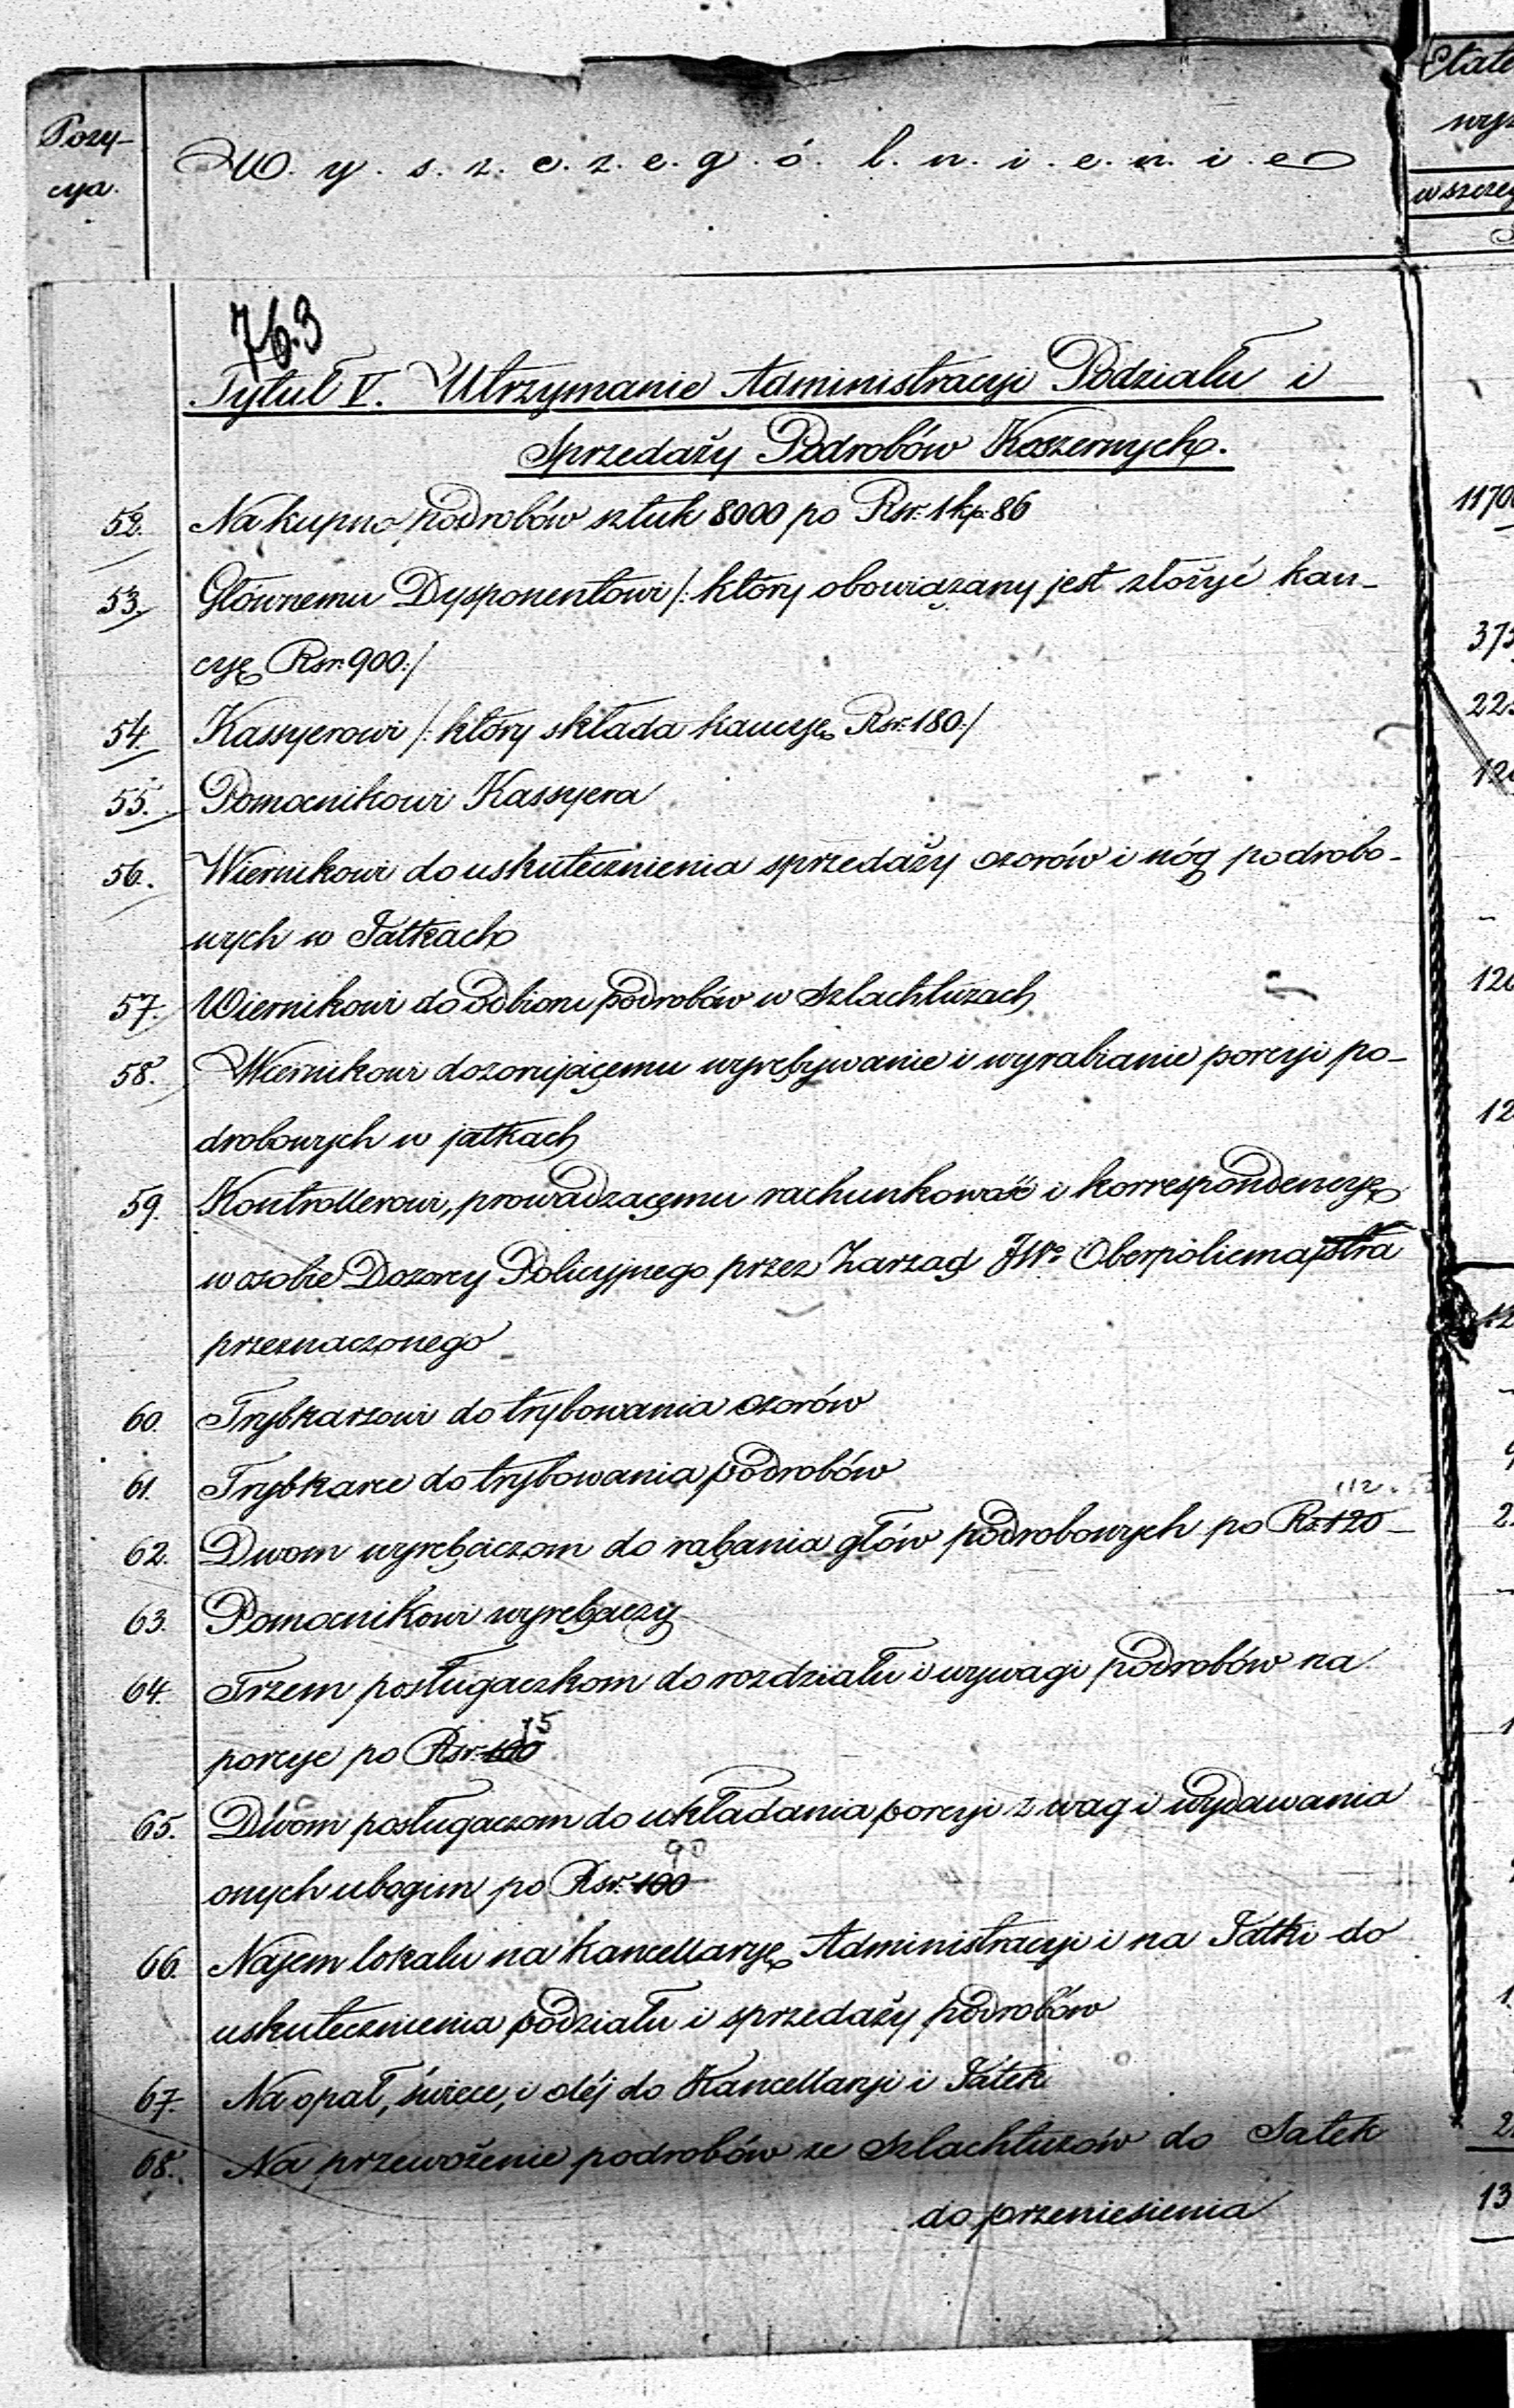 Pozy-
cya.
W. y. s. z. c. z. e. g. ó. l. n. i. e. n. i. e
763
Tytuł V. Utrzymanie Administracyi Podziału i
Sprzedaży Podrobów Koszernych.
52. Na kupno podrobów sztuk 8000 po Rsr. 1 kp. 86
53. Głównemu Dysponentowi /: który obowiązany jest złożyć kau-
cyę Rsr. 900 :/
54. Kassyerowi /: który składa kaucyę Rsr. 180 :/
55. Pomocnikowi Kassyera
56. Wiernikowi do uskutecznienia sprzedaży ozorów i nóg podrobo-
wych w Jatkach
57. Wiernikowi do odbioru podrobów w Szlachtuzach
58. Wiernikowi dozorującemu wyrębywanie i wyrabianie porcyi po-
drobowych w jatkach
59. Kontrollerowi, prowadzącemu rachunkowość i korrespondencyę
w osobie Dozorcy Policyjnego przez Zarząd JWo Oberpolicmajstra
przeznaczonego
60. Trybkarzowi do trybowania ozorów
61. Trybkarce do trybowania podrobów
112
62. Dwom wyrębaczom do rąbania głów podrobowych po Rs. 120
63. Pomocnikowi wyrębaczy
64. Trzem posługaczkom do rozdziału i wywagi podrobów na
75
porcye po Rsr. 100
65. Dwom posługaczom do układania porcyi z wag i wydawania
90
onych ubogim po Rsr. 100
66. Najem lokalu na kancellaryę Administracyi i na Jatki do
uskutecznienia podziału i sprzedaży podrobów
67. Na opał, świece, i oléj do Kancellaryi i Jatek
68. Na przewożenie podrobów ze Szlachtuzów do Jatek
do przeniesienia